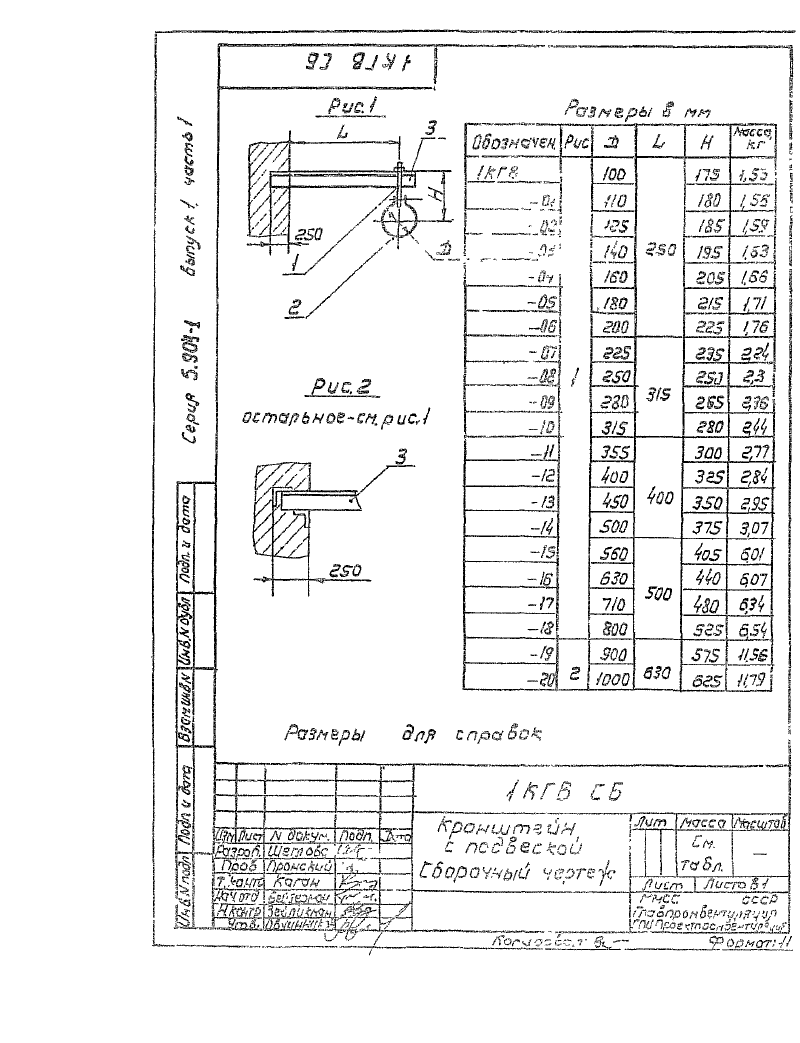 1КГВ СБ
Серия 5.904-1 выпуск 1 часть 1
Рис.1
L
3
H
250
D
1
2
Рис.2
остальное-см. рис.1
3
250
Размеры в мм
Обозначен. Рис D L H Масса, кг
1КГВ 1 100 250 175 1,53
-01 110 180 1,56
-02 125 185 1,59
-03 140 195 1,63
-04 160 205 1,66
-05 180 215 1,71
-06 200 225 1,76
-07 225 315 235 2,24
-08 250 250 2,3
-09 280 265 2,36
-10 315 280 2,44
-11 355 400 300 2,77
-12 400 325 2,84
-13 450 350 2,95
-14 500 375 3,07
-15 560 500 405 6,01
-16 630 440 6,07
-17 710 480 6,34
-18 800 525 6,54
-19 2 900 630 575 11,56
-20 1000 625 11,79
Размеры для справок
Инв.N подл Подп. и дата Взам инв.N Инв.N дубл Подп. и дата
1КГВ СБ
Изм Лист N докум. Подп. Дата
Разраб.
Пров Пронский
Т. контр Каган
Нач ото
Н.контр Зейликман
Утв.
Кронштейн
с подвеской
Сборочный чертеж
Лит Масса Масштаб
См. табл. —
Лист Листов 1
ММСС СССР
Главпромвентиляция
ГПИ Проектпромвентиляция
Копировал
Формат: 11